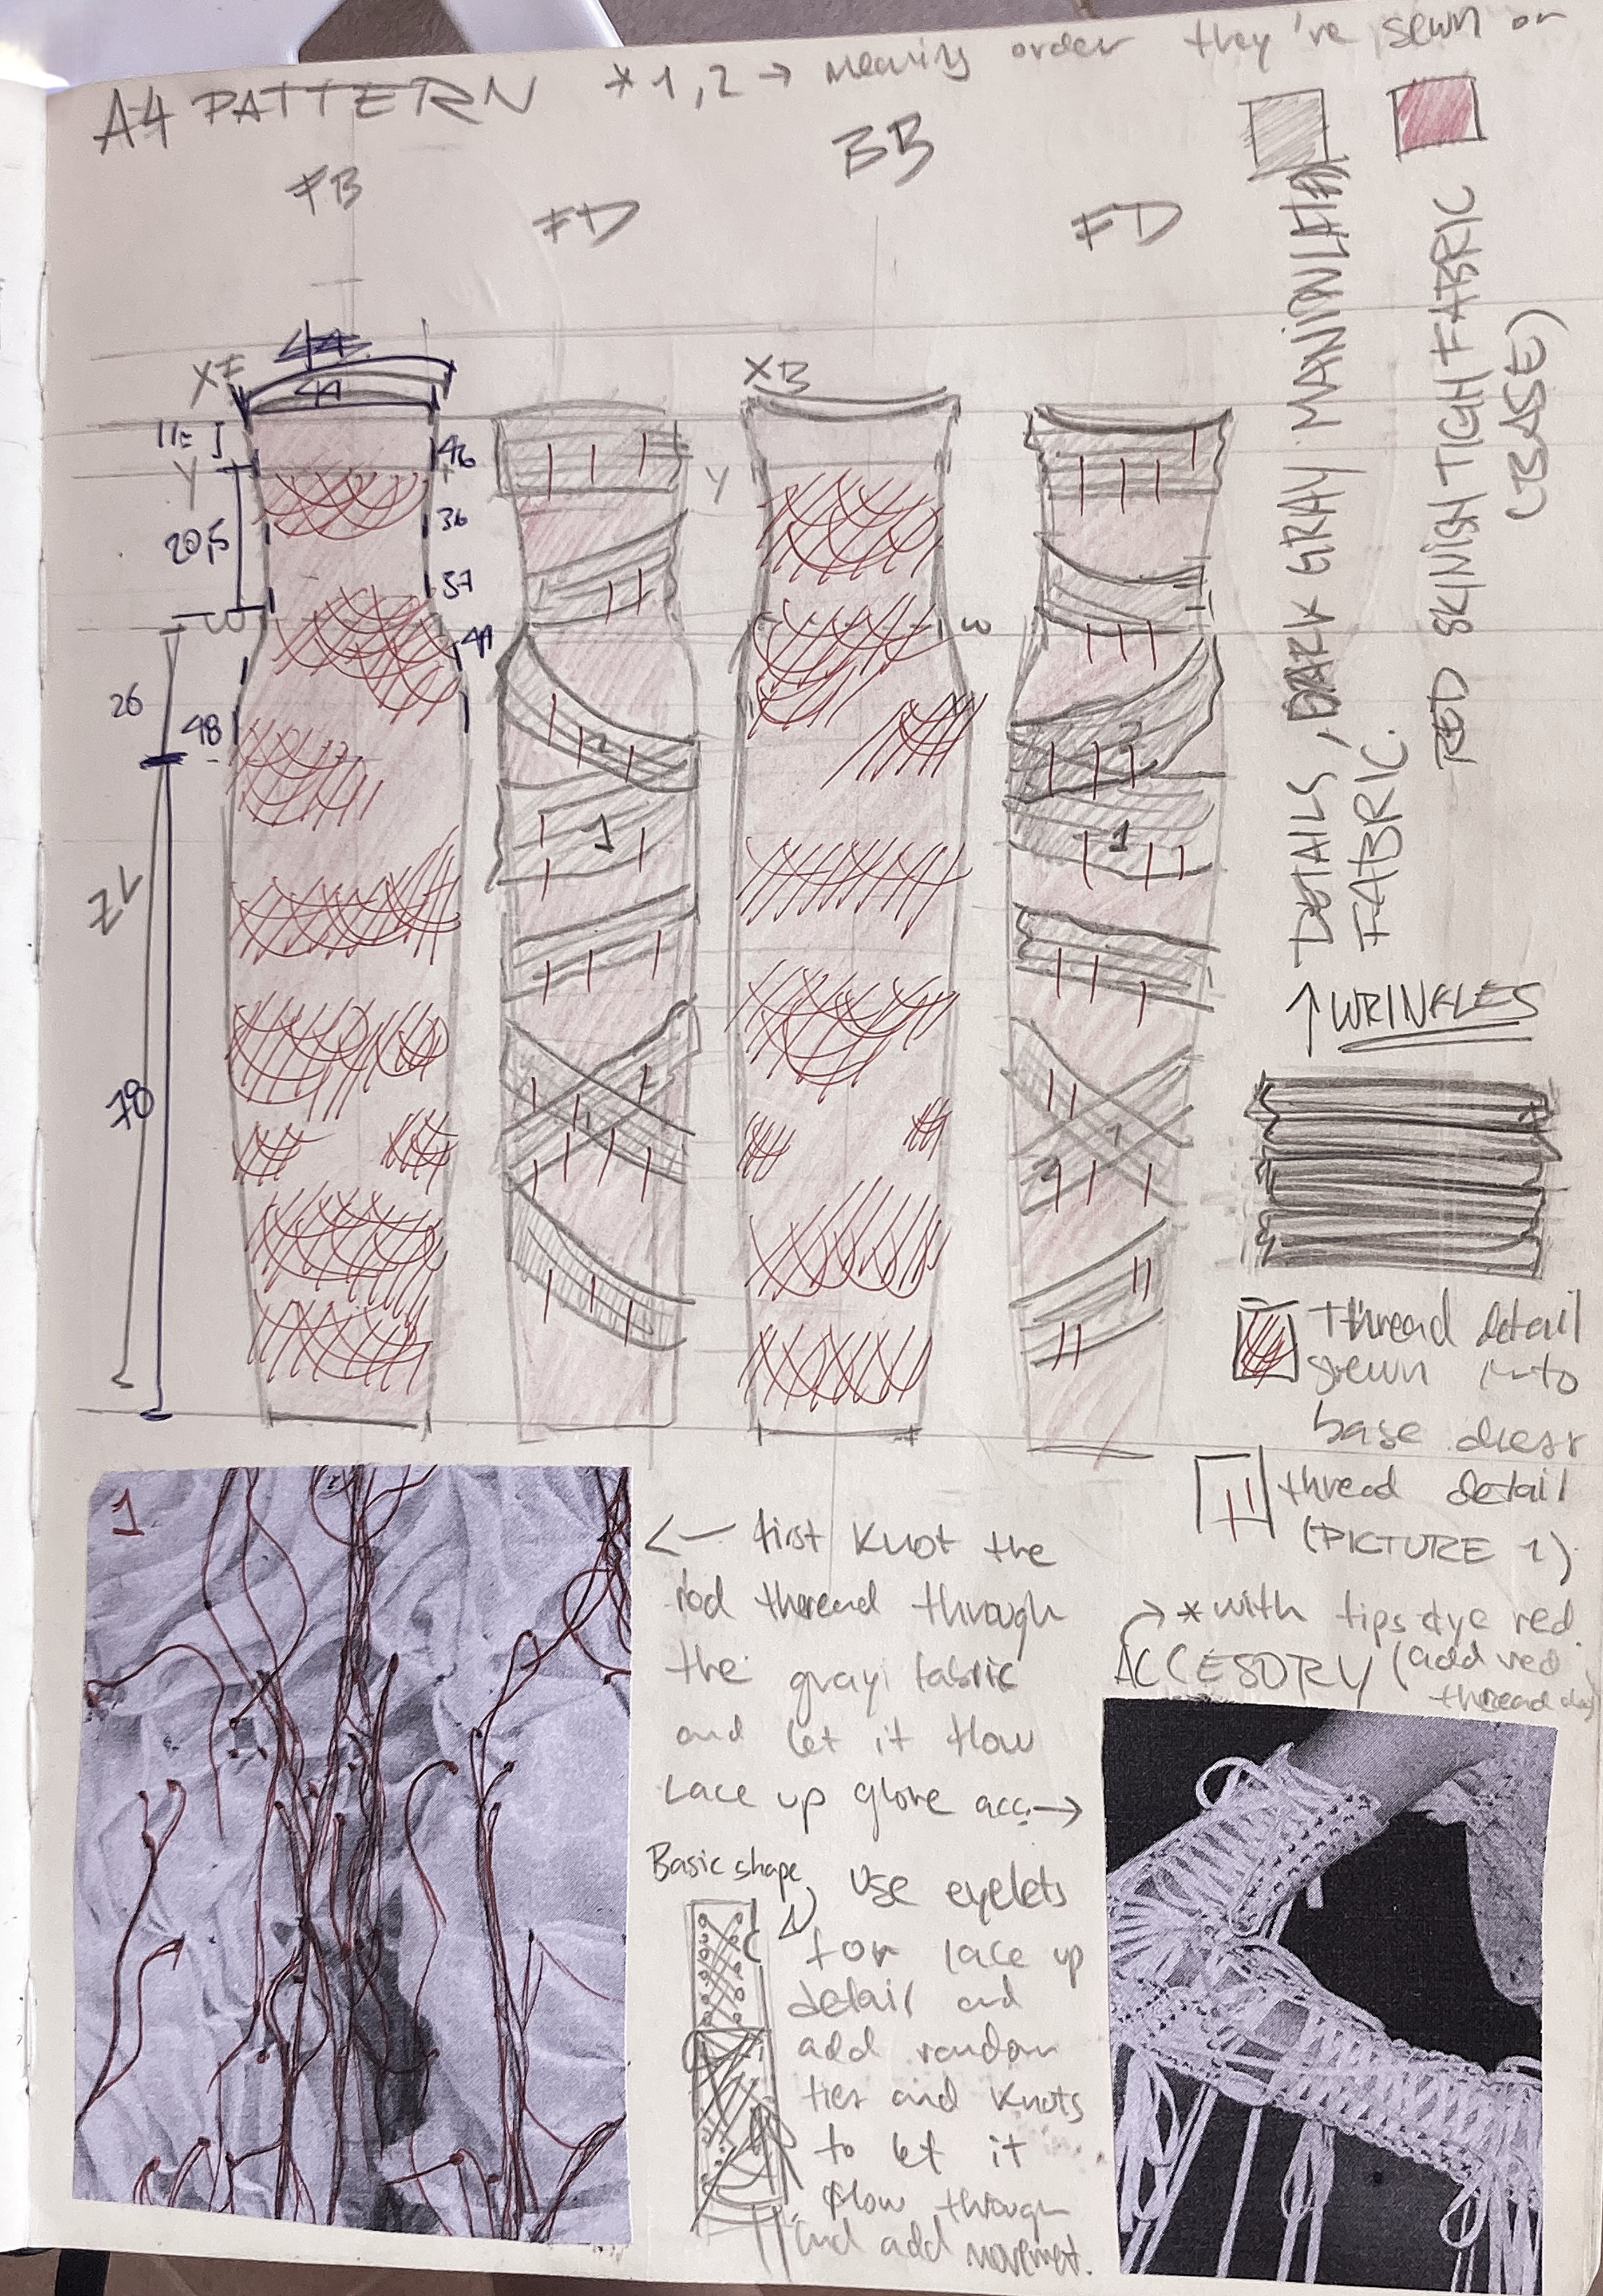 A4 PATTERN *1,2 → meaning order they're sewn on
FB
FD
BB
FD
XF
44
44
11=
Y
20,5
W
26
48
ZL
78
46
36
37
41
2
1
1
XB
Y
W
2
1
1
2
DETAILS, DARK GRAY
FABRIC.
RED SKINISH TIGHT FABRIC
(BASE)
↑ WRINKLES
thread detail
sewn into
base dress
thread detail
(PICTURE 1)
1
← first knot the
red theread through
the grayi fabric
and let it flow
Lace up glove acc. →
Basic shape
Use eyelets
for lace up
detail and
add random
ties and knots
to let it
flow through
and add movement.
→ *with tips dye red.
ACCESORY (add red
thread also)